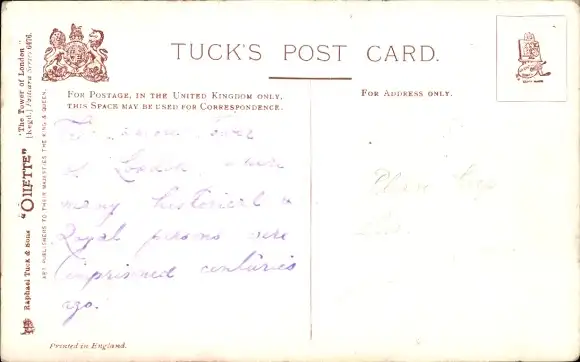 TUCK'S POST CARD.
FOR POSTAGE, IN THE UNITED KINGDOM ONLY,
THIS SPACE MAY BE USED FOR CORRESPONDENCE.
FOR ADDRESS ONLY.
Tower
of London where
many historical &
Royal persons were
imprisoned centuries
ago.
Printed in England.
Raphael Tuck & Sons "OILETTE" "The Tower of London"
[Regd.] Postcard Series 6476.
ART PUBLISHERS TO THEIR MAJESTIES THE KING & QUEEN.